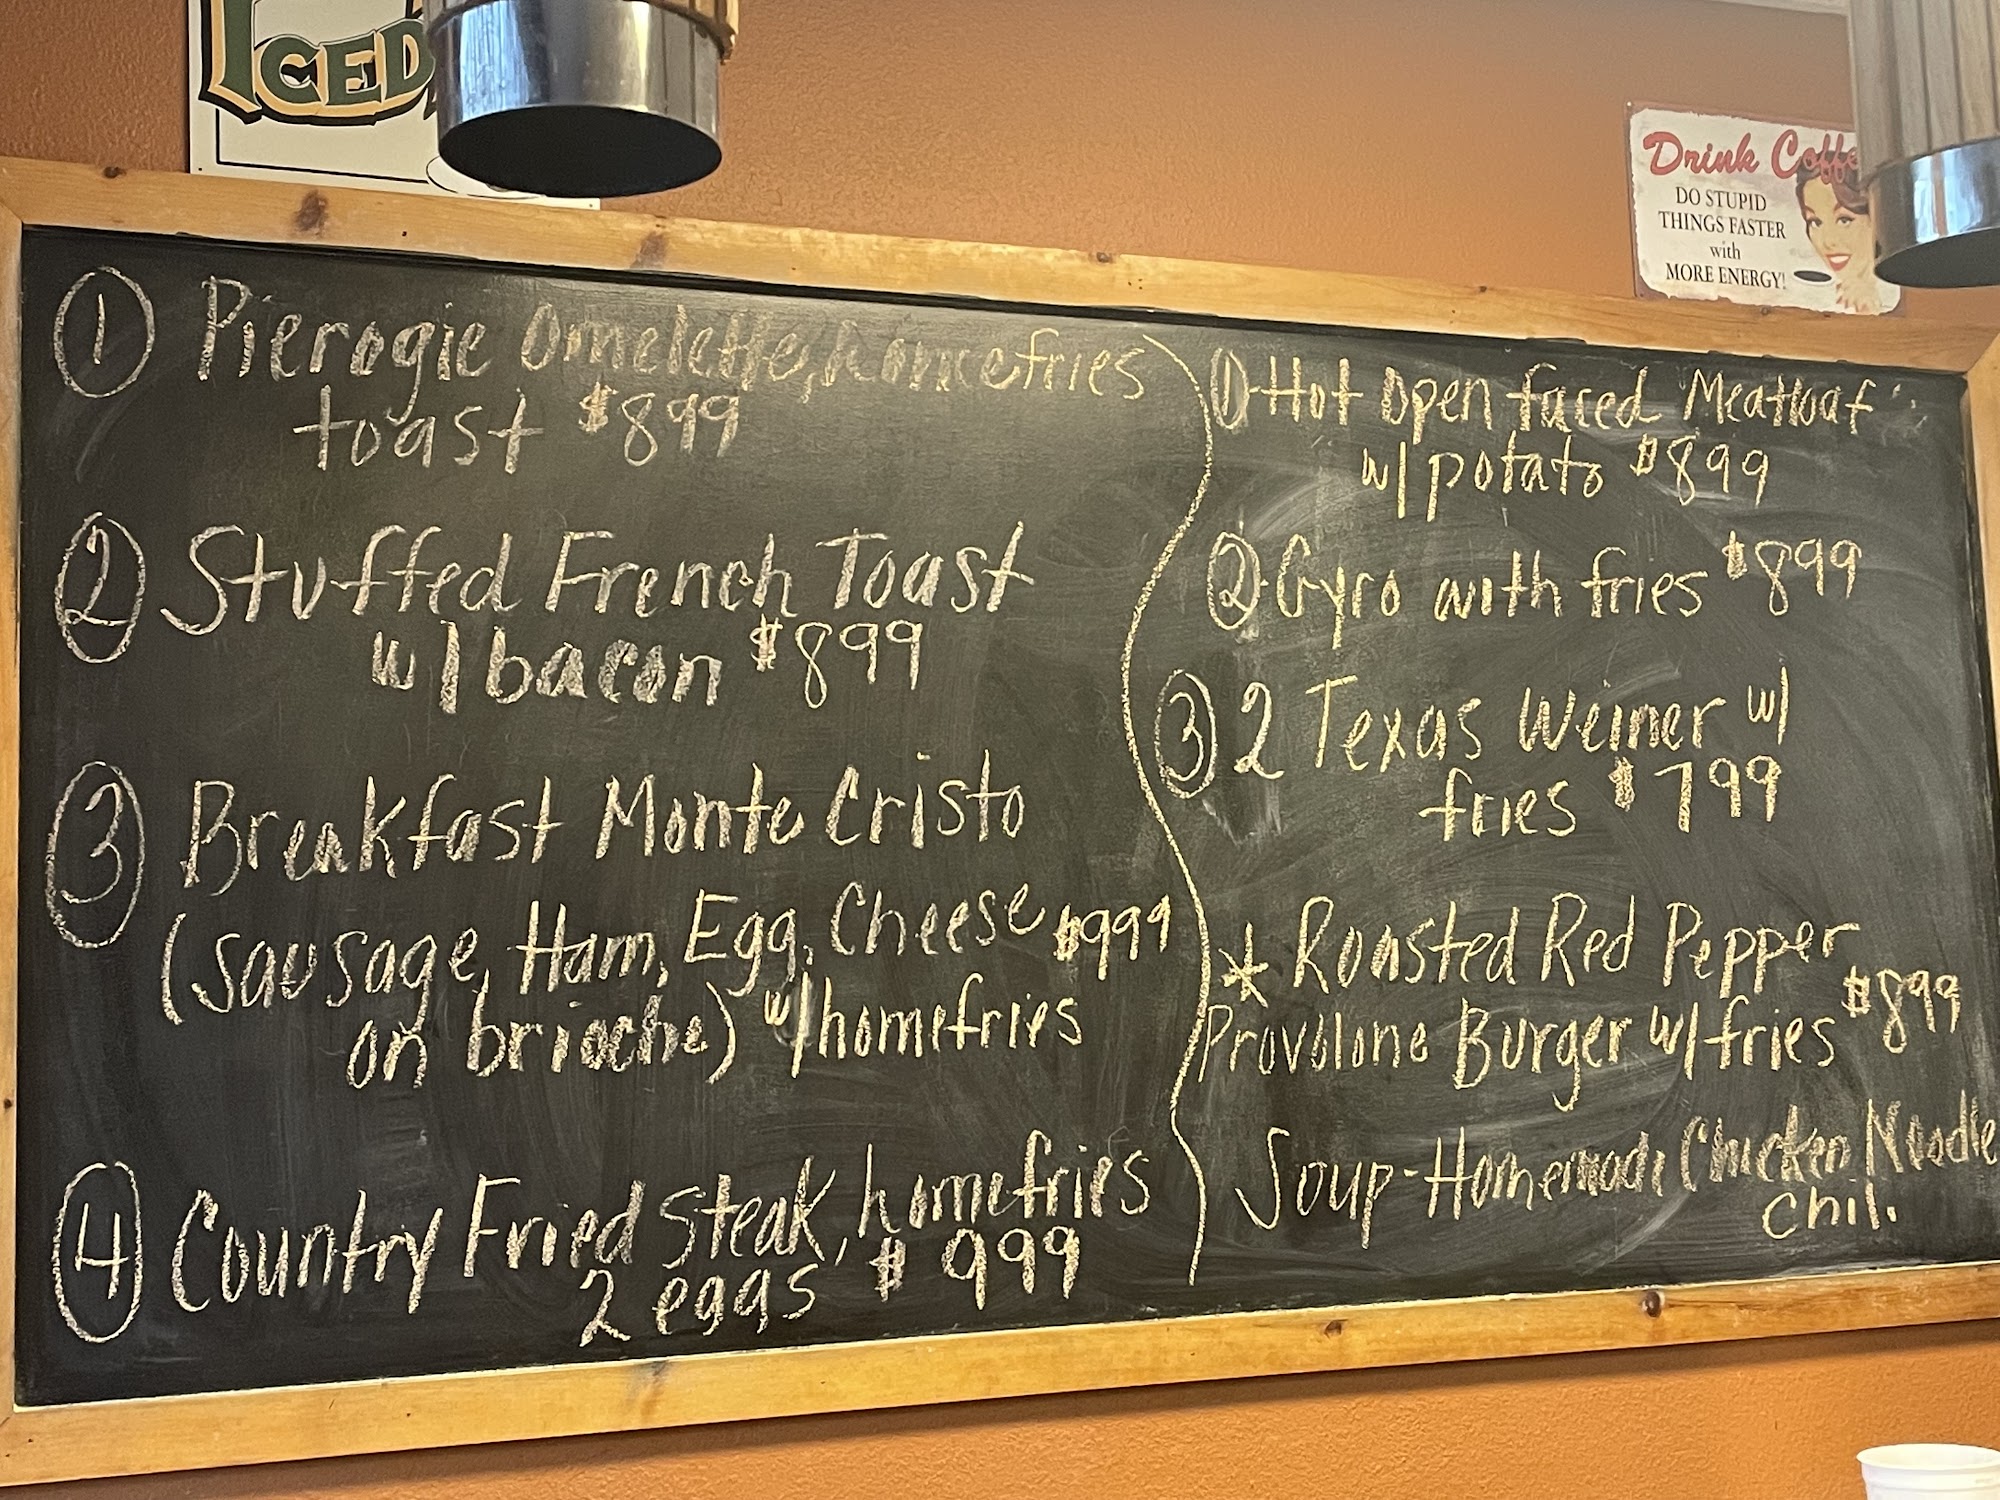 ICED
Drink Coffe
DO STUPID
THINGS FASTER
with
MORE ENERGY!
1 Pierogie Omelette, homefries
toast $899
2 Stuffed French Toast
w/bacon $899
3 Breakfast Monte Cristo
(sausage, Ham, Egg, Cheese $999
on brioche) w/homefries
4 Country Fried Steak, homefries
2 eggs $999
1-Hot Open faced Meatloaf
w/potato $899
2-Gyro with fries $899
3 2 Texas Weiner w/
fries $799
* Roasted Red Pepper
Provolone Burger w/fries $899
Soup-Homemade Chicken Noodle
Chil.